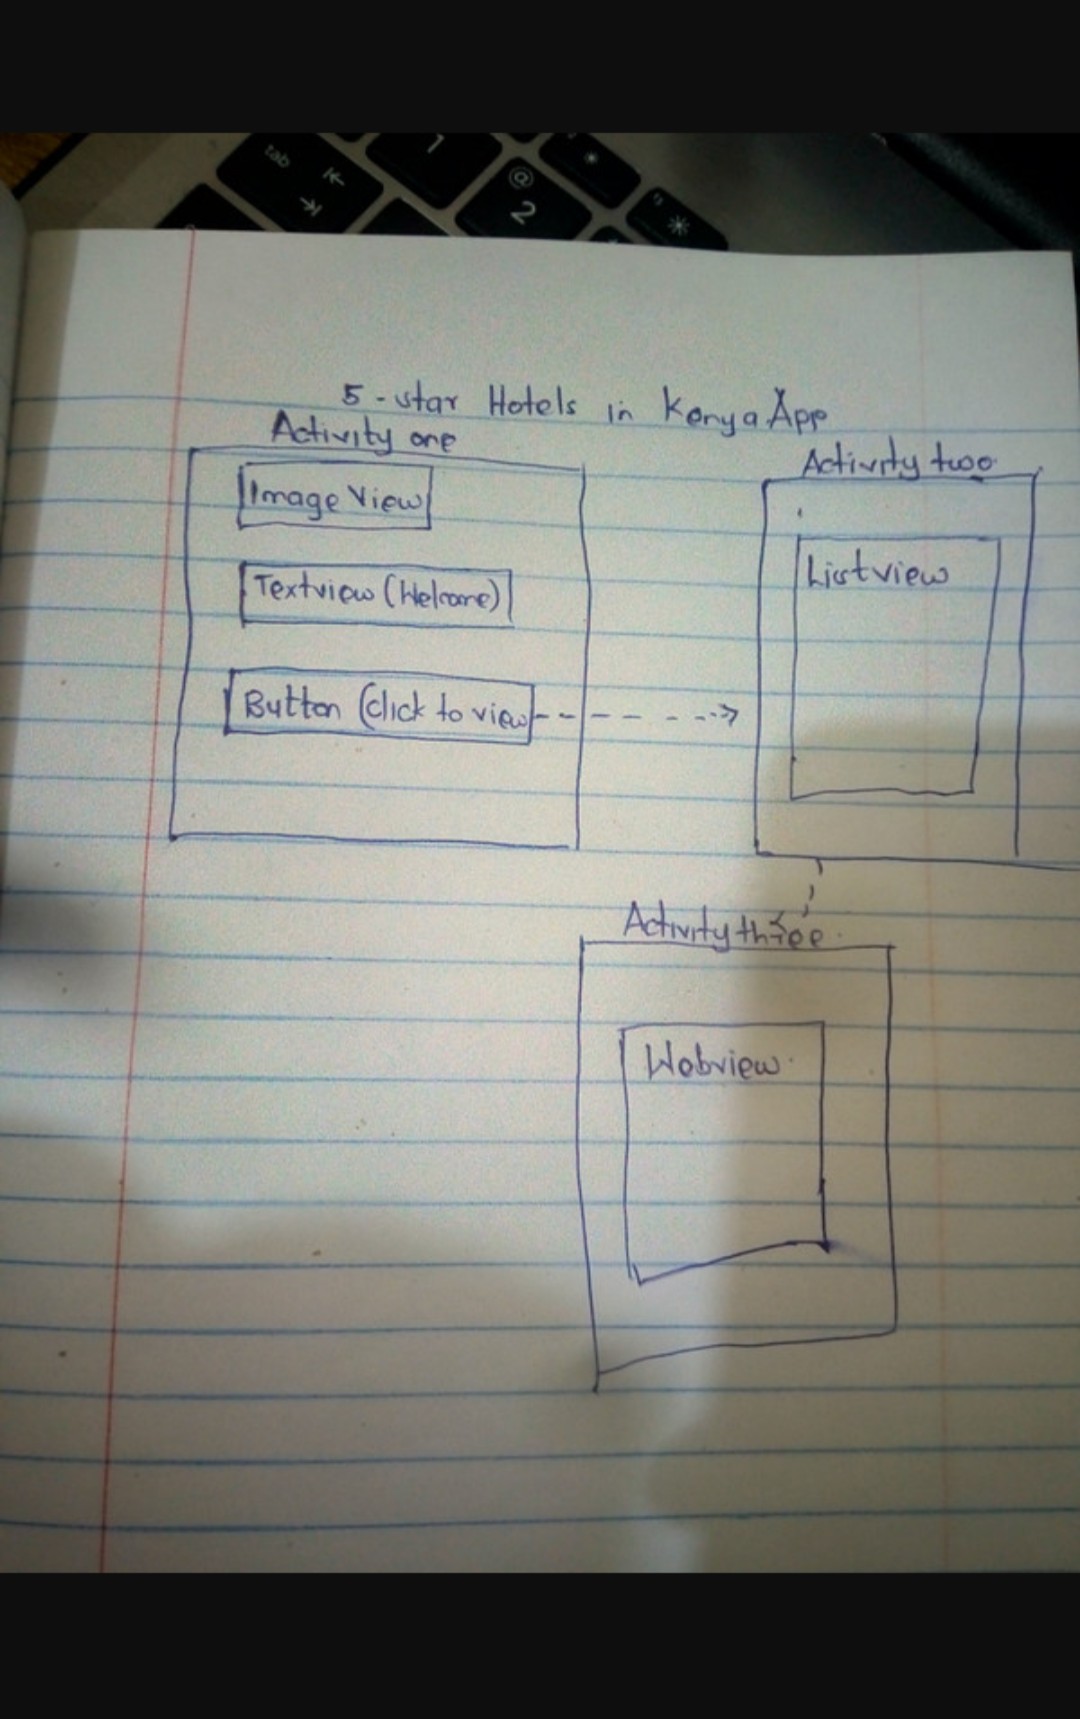 tab
1
@
2
*
"
*
5-star Hotels in Kenya App
Activity one
Image View
Textview (Welcome)
Button (Click to view
Activity two
Listview
Activity three
Webview